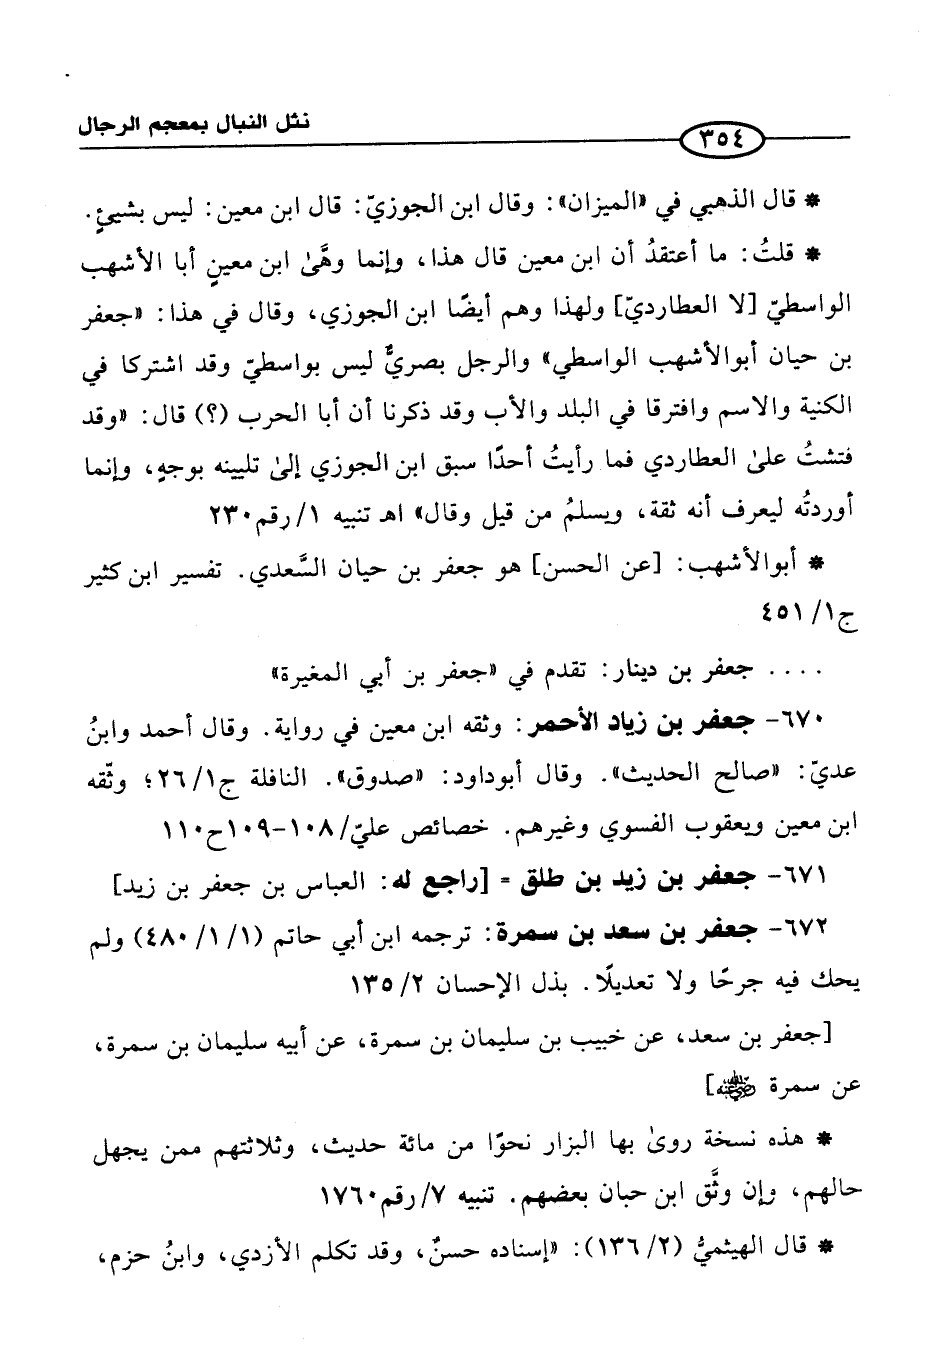 نثل النبال بمعجم الرجال
٣٥٤
* قال الذهبي في «الميزان»: وقال ابن الجوزيّ: قال ابن معين: ليس بشيئٍ.
* قلتُ: ما أعتقدُ أن ابن معين قال هذا، وإنما وهَّىٰ ابن معينٍ أبا الأشهب
الواسطيّ [لا العطارديّ] ولهذا وهم أيضًا ابن الجوزي، وقال في هذا: «جعفر
بن حيان أبوالأشهب الواسطي» والرجل بصريٌّ ليس بواسطيّ وقد اشتركا في
الكنية والاسم وافترقا في البلد والأب وقد ذكرنا أن أبا الحرب (؟) قال: «وقد
فتشتُ علىٰ العطاردي فما رأيتُ أحدًا سبق ابن الجوزي إلىٰ تليينه بوجهٍ، وإنما
أوردتُه ليعرف أنه ثقة، ويسلمُ من قيل وقال» اهـ تنبيه ١/رقم٢٣٠
* أبوالأشهب: [عن الحسن] هو جعفر بن حيان السَّعدي. تفسير ابن كثير
ج١/٤٥١
.... جعفر بن دينار: تقدم في «جعفر بن أبي المغيرة»
٦٧٠- جعفر بن زياد الأحمر: وثقه ابن معين في رواية. وقال أحمد وابنُ
عديّ: «صالح الحديث». وقال أبوداود: «صدوق». النافلة ج١/٢٦؛ وثّقه
ابن معين ويعقوب الفسوي وغيرهم. خصائص عليّ/١٠٨-١٠٩ح١١٠
٦٧١- جعفر بن زيد بن طلق = [راجع له: العباس بن جعفر بن زيد]
٦٧٢- جعفر بن سعد بن سمرة: ترجمه ابن أبي حاتم (١/١/٤٨٠) ولم
يحك فيه جرحًا ولا تعديلًا. بذل الإحسان ٢/١٣٥
[جعفر بن سعد، عن خبيب بن سليمان بن سمرة، عن أبيه سليمان بن سمرة،
عن سمرة رضي الله عنه]
* هذه نسخة روىٰ بها البزار نحوًا من مائة حديث، وثلاثتهم ممن يجهل
حالهم، وإن وثَّق ابن حبان بعضهم. تنبيه ٧/رقم١٧٦٠
* قال الهيثميُّ (٢/١٣٦): «إسناده حسنٌ، وقد تكلم الأزدي، وابنُ حزم،